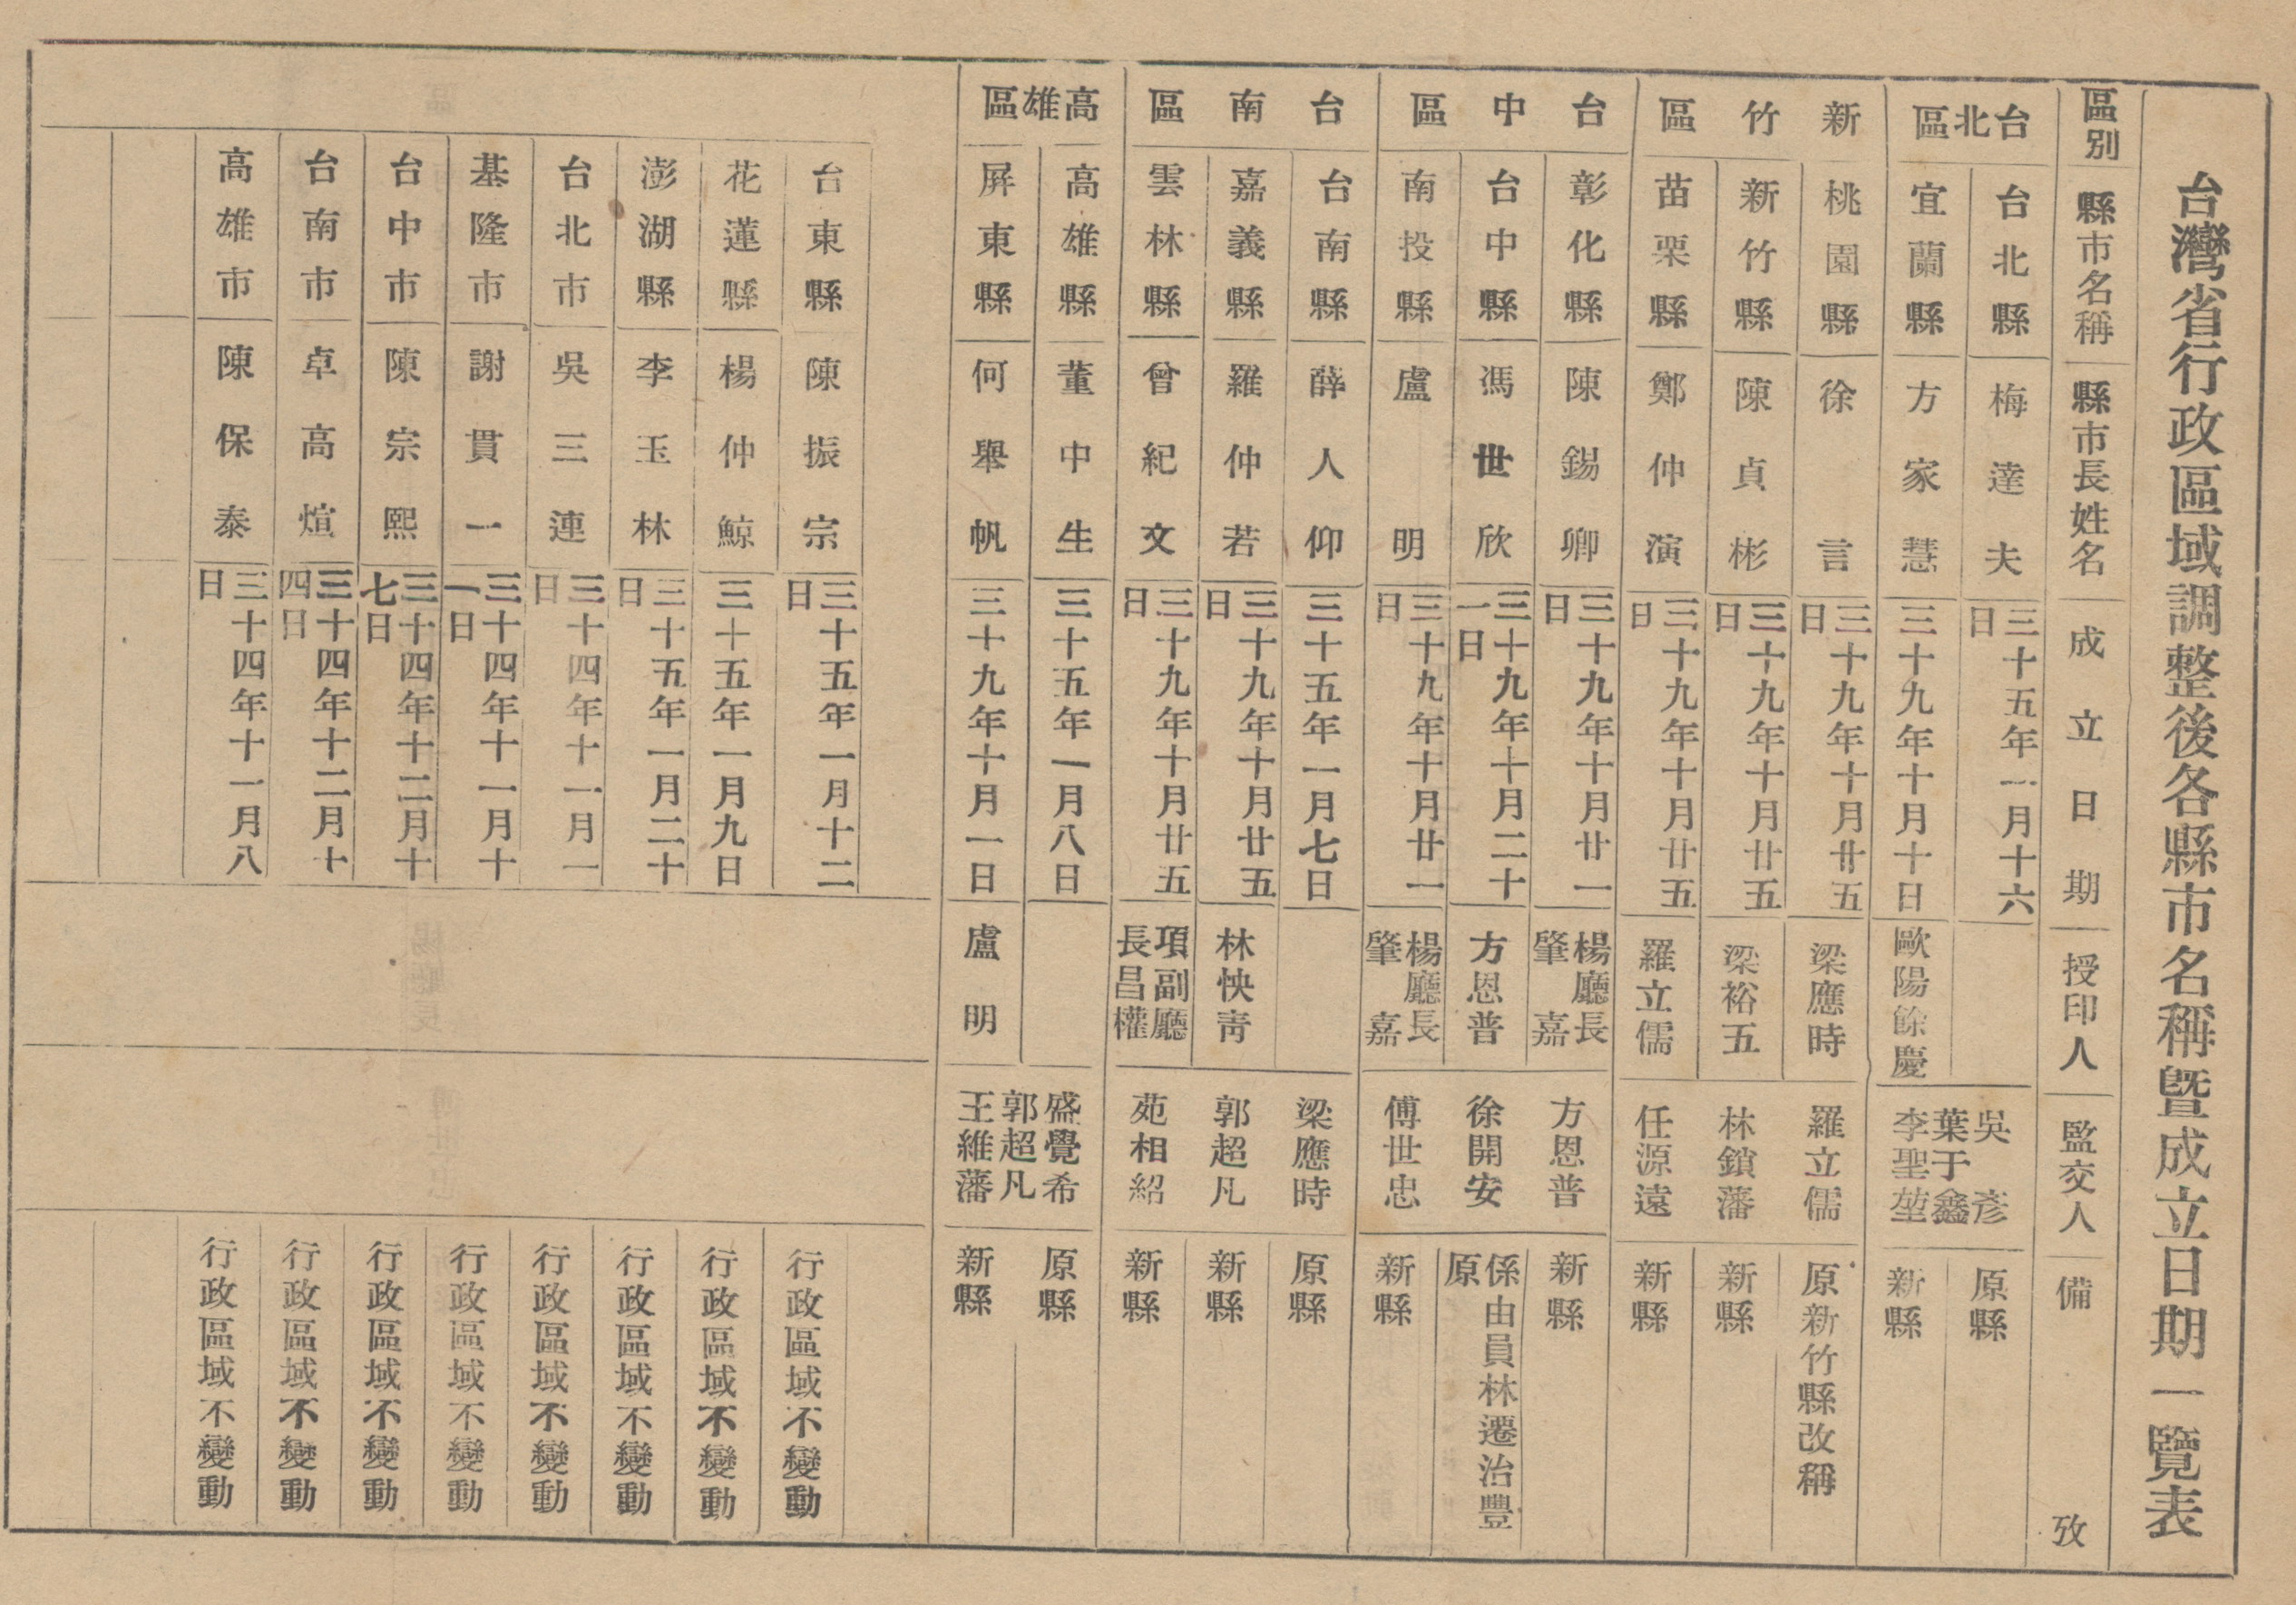 台灣省行政區域調整後各縣市名稱暨成立日期一覽表
區別 縣市名稱 縣市長姓名 成立日期 授印人 監交人 備攷
台北區
台北縣 梅達夫 三十五年一月十六日 原縣
宜蘭縣 方家慧 三十九年十月十日 歐陽餘慶 新縣
吳彥
葉于鑫
李聖堃
新竹區
桃園縣 徐言 三十九年十月廿五日 梁應時 羅立儒 原新竹縣改稱
新竹縣 陳貞彬 三十九年十月廿五日 梁裕五 林鎖藩 新縣
苗栗縣 鄭仲演 三十九年十月廿五日 羅立儒 任源遠 新縣
台中區
彰化縣 陳錫卿 三十九年十月廿一日 楊廳長肇嘉 方恩普 新縣
台中縣 馮世欣 三十九年十月二十一日 方恩普 徐開安 係由員林遷治豐原
南投縣 盧明 三十九年十月廿一日 楊廳長肇嘉 傅世忠 新縣
台南區
台南縣 薛人仰 三十五年一月七日 梁應時 原縣
嘉義縣 羅仲若 三十九年十月廿五日 林怏靑 郭超凡 新縣
雲林縣 曾紀文 三十九年十月廿五日 項副廳長昌權 苑相紹 新縣
高雄區
高雄縣 董中生 三十五年一月八日 原縣
屛東縣 何舉帆 三十九年十月一日 盧明 新縣
盛覺希
郭超凡
王維藩
台東縣 陳振宗 三十五年一月十二日 行政區域不變動
花蓮縣 楊仲鯨 三十五年一月九日 行政區域不變動
澎湖縣 李玉林 三十五年一月二十日 行政區域不變動
台北市 吳三連 三十四年十一月一日 行政區域不變動
基隆市 謝貫一 三十四年十一月十一日 行政區域不變動
台中市 陳宗熙 三十四年十二月十七日 行政區域不變動
台南市 卓高煊 三十四年十二月十四日 行政區域不變動
高雄市 陳保泰 三十四年十一月八日 行政區域不變動